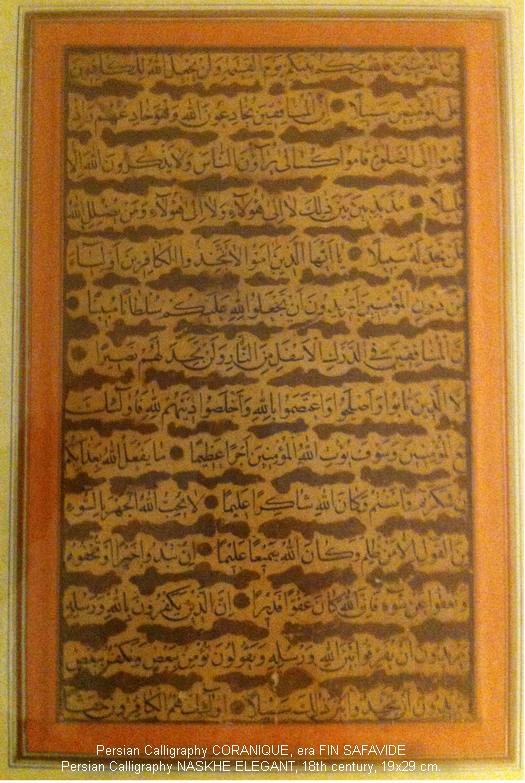 المؤمنين فالله يحكم بينكم يوم القيمة ولن يجعل الله للكافرين
على المؤمنين سبيلا ان المنافقين يخادعون الله وهو خادعهم واذا
قاموا الى الصلوة قاموا كسالى يراؤن الناس ولا يذكرون الله الا
قليلا مذبذبين بين ذلك لا الى هؤلاء ولا الى هؤلاء ومن يضلل الله
فلن تجد له سبيلا يا ايها الذين امنوا لا تتخذوا الكافرين اولياء
من دون المؤمنين اتريدون ان تجعلوا لله عليكم سلطانا مبينا
ان المنافقين في الدرك الاسفل من النار ولن تجد لهم نصيرا
الا الذين تابوا واصلحوا واعتصموا بالله واخلصوا دينهم لله فاولئك
مع المؤمنين وسوف يؤت الله المؤمنين اجرا عظيما ما يفعل الله بعذابكم
ان شكرتم وامنتم وكان الله شاكرا عليما لا يحب الله الجهر بالسوء
من القول الا من ظلم وكان الله سميعا عليما ان تبدوا خيرا او تخفوه
او تعفوا عن سوء فان الله كان عفوا قديرا ان الذين يكفرون بالله ورسله
ويريدون ان يفرقوا بين الله ورسله ويقولون نؤمن ببعض ونكفر ببعض
ويريدون ان يتخذوا بين ذلك سبيلا اولئك هم الكافرون حقا
Persian Calligraphy CORANIQUE, era FIN SAFAVIDE
Persian Calligraphy NASKHE ELEGANT, 18th century, 19x29 cm.